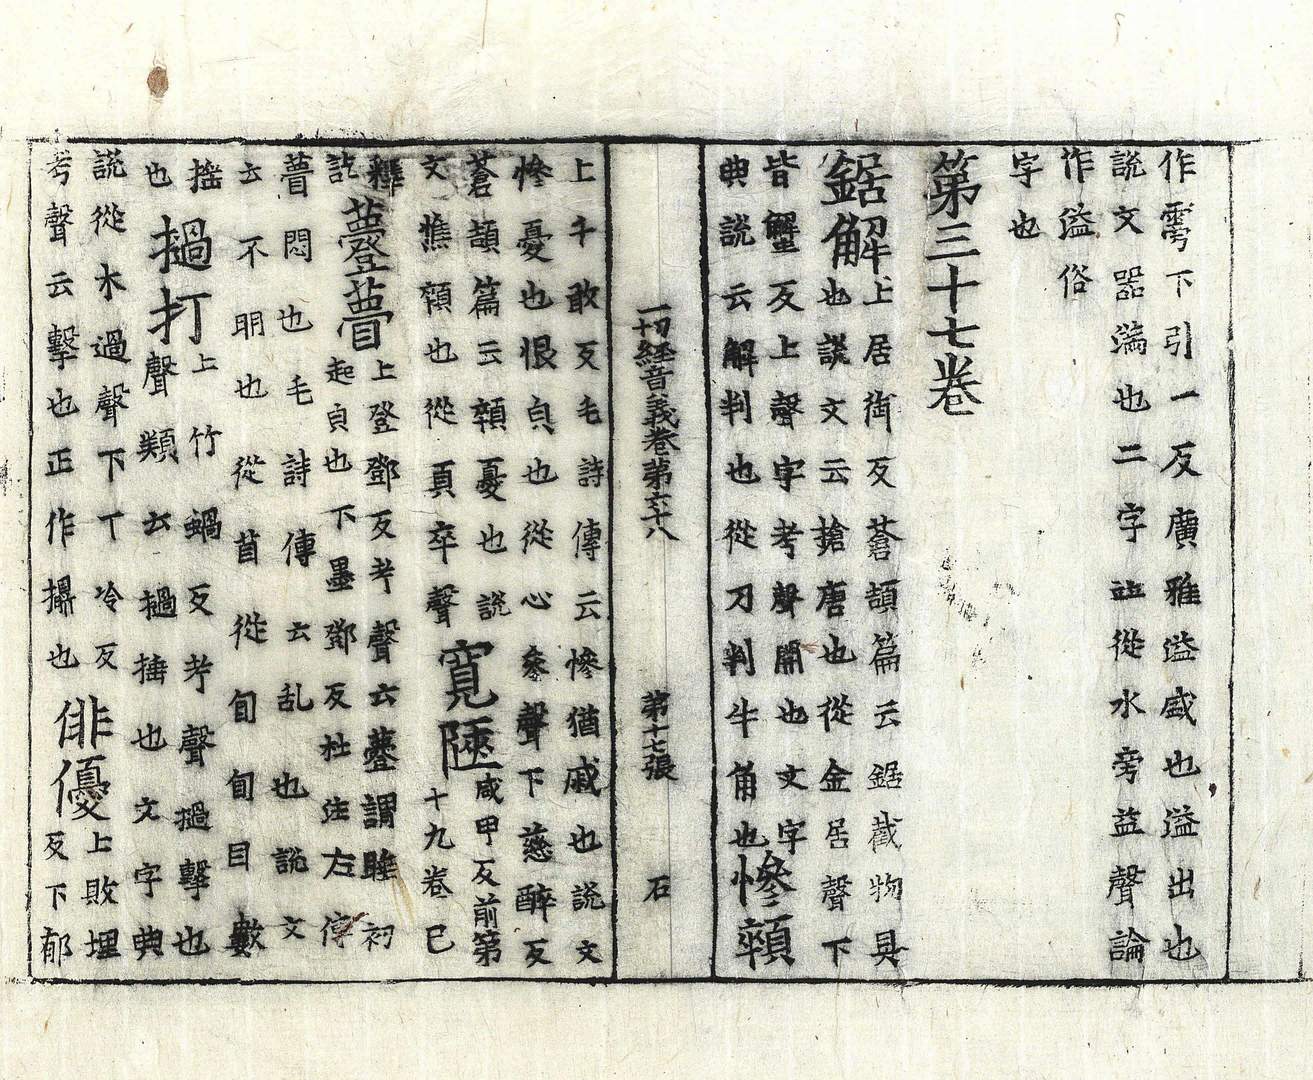 作霶下引一反廣雅溢盛也溢出也
說文器滿也二字並從水旁益聲論
作溢俗
字也
第三十七卷
鋸解上居御反蒼頡篇云鋸截物具
也說文云搶唐也從金居聲下
皆蟹反上聲字考聲開也文字
典說云解判也從刀判牛角也慘顇
一切經音義卷第六十八 第十七張 石
上千敢反毛詩傳云慘猶戚也說文
慘憂也恨皃也從心參聲下慈醉反
蒼頡篇云顇憂也說
文憔顇也從頁卒聲寛陿咸甲反前第
十九卷已
釋
訖䔲瞢上登鄧反考聲云䔲謂睡初
起皃也下墨鄧反杜注左傳
瞢悶也毛詩傳云乱也說文
云不明也從苜從旬旬目數
搖
也撾打上竹蝸反考聲撾擊也
聲類云撾捶也文字典
說從木過聲下丁冷反
考聲云擊也正作𢷤也俳優上敗埋
反下郁